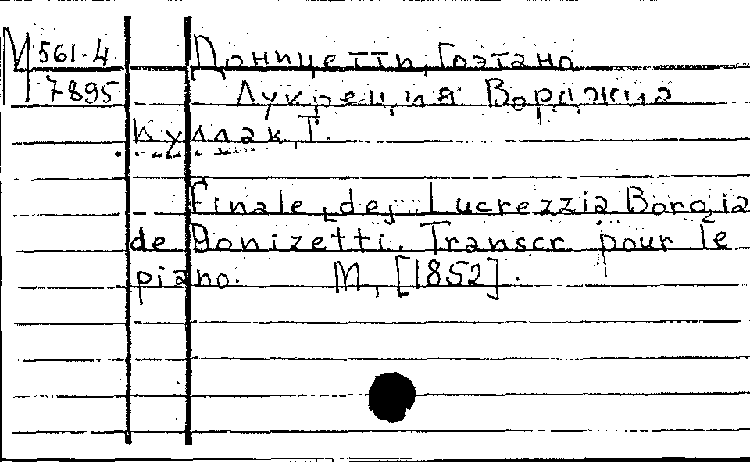 М 561-4 Доницетти, Гаэтано
7895 Лукреция Борджиа
Куллак, Т.
Finale de Lucrezzia Borgia
de Donizetti. Transcr. pour le
piano. М, [1852].